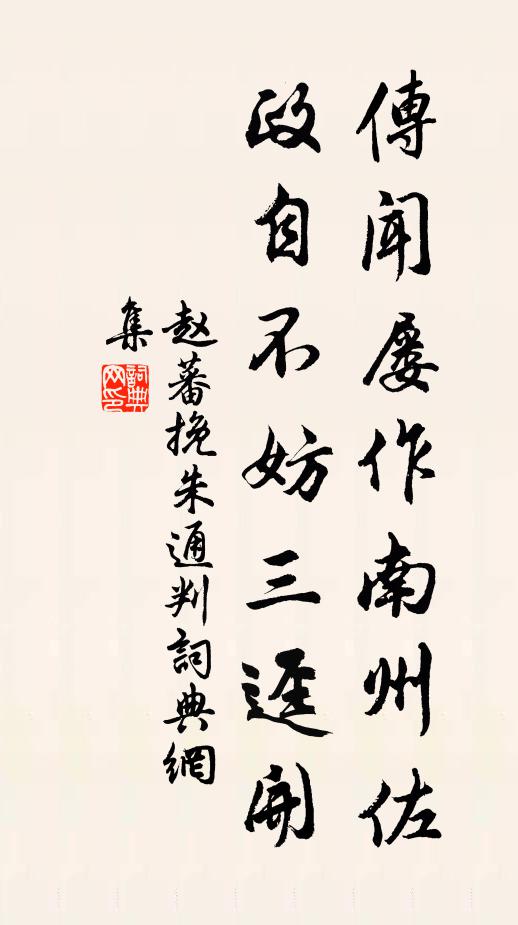 傳聞屡作南州佐
政自不妨三迳開
赵蕃挽朱通判詞典網
集
詞典
网印